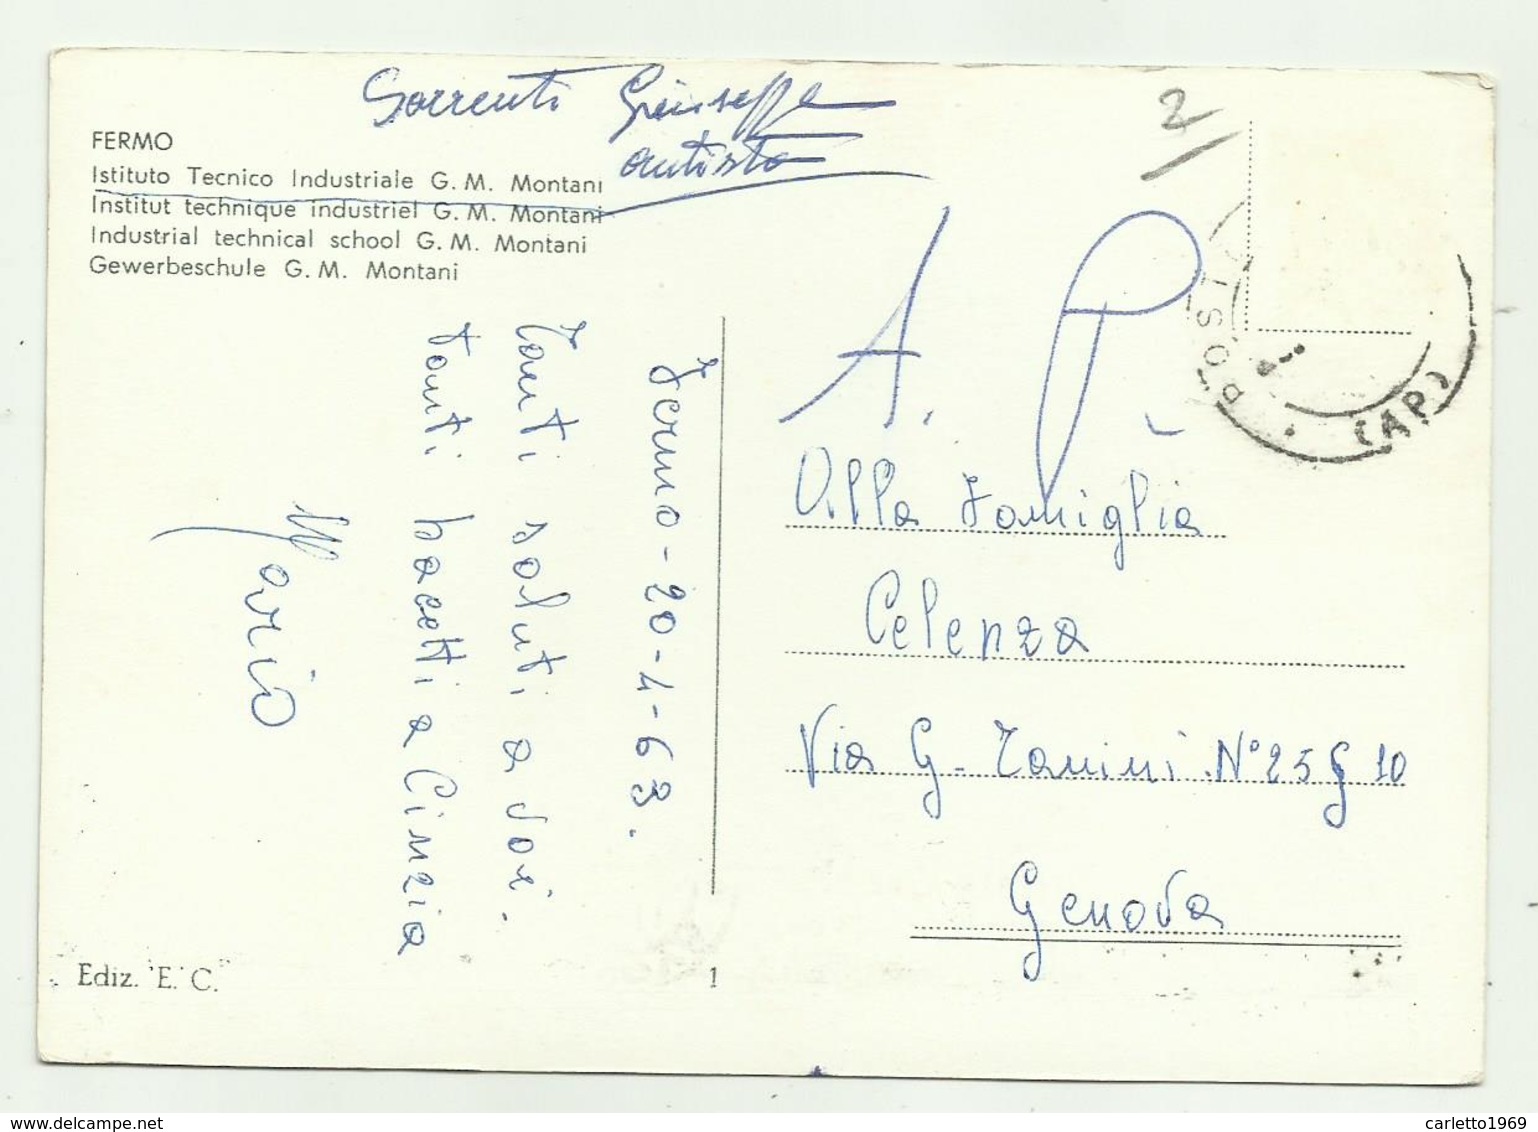 Sorrenti Giuseppe
autista
2
FERMO
Istituto Tecnico Industriale G. M. Montani
Institut technique industriel G. M. Montani
Industrial technical school G. M. Montani
Gewerbeschule G. M. Montani
A. P.
POSTE
(AP)
Fermo - 20-1-63.
Tanti saluti a voi.
Tanti bacetti a Cinzia
Mario
Alla Famiglia
Celenza
Via G. Zanini N° 25 G 10
Genova
Ediz. E. C.
1
carletto1969